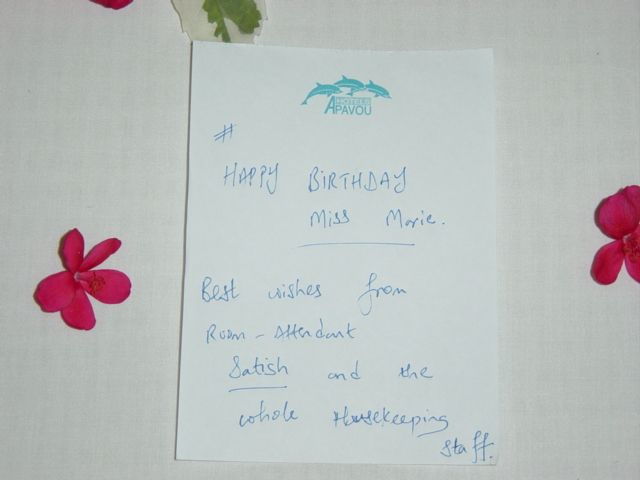 HOTELS
APAVOU
#
HAPPY BIRTHDAY
Miss Marie.
Best wishes from
Room - Attendant
Satish and the
whole Housekeeping
Staff.